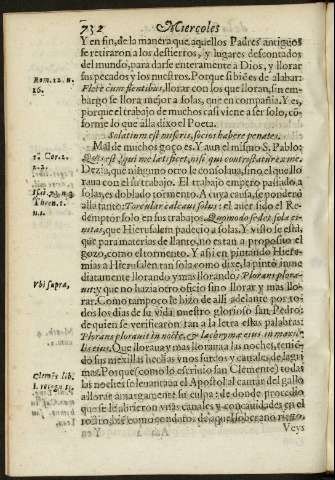 732 Miercoles
Y en fin, de la manera que aquellos Padres antiguos
se retiraron a los desiertos, y lugares descontados
del mundo, para darse enteramente a Dios, y llorar
sus pecados y los nuestros. Porque si biē es de alabar:
Flere cum flentibus, llorar con los que lloran, sin em
bargo se llora mejor a solas, que en compañia. Y es,
porque el trabajo de muchos casi viene a ser solo, cō
forme lo que alla dixo el Poeta.
Solatium est miseris, socios habere penates.
Mal de muchos goço es. Y aun el mismo S. Pablo:
Quis est qui me lætificet, nisi qui contristatur ex me.
Dezia, que ninguno otro le consolaua, sino el que llo
raua con el su trabajo. El trabajo empero passado a
solas, es doblado tormento. A cuya causa, se ponderó
alla tanto: Torcular calcaui solus: el auer sido el Re-
demptor solo en sus trabajos. Quomodo sedet sola ci-
uitas, que Hierusalem padecia a solas. Y visto se està,
que para materias de llanto, no estan a proposito el
gozo, como el tormento. Y assi en pintando Hiere-
mias a Hierusalen tan sola como dixe, la pintò inme
diatamente llorando y mas llorando: Plorans plora-
uit: y que no hazia otro oficio sino llorar y mas llo-
rar. Como tampoco le hizo de alli adelante por to-
dos los dias de su vida nuestro glorioso san Pedro:
de quien se verificaron tan a la letra estas palabras:
Plorans plorauit in nocte, & lachrymæ eius in maxil-
lis eius. Que lloraua y mas lloraua a las noches, teniē-
do sus mexillas hechas vnos surcos y canales, de lagri
mas. Porque (como lo escriuio san Clemente) todas
las noches se leuantaua el Apostol al cantar del gallo
a llorar amargamente su culpa: de donde procedio
que se le abrieron vnas canales y concauidades en el
rostro bien
Veys
Rom. 12. n.
16.
1ª Cor. 2.
n. 2.
Thren. 1.
n. 1.
Vbi supra,
Clemēs lib.